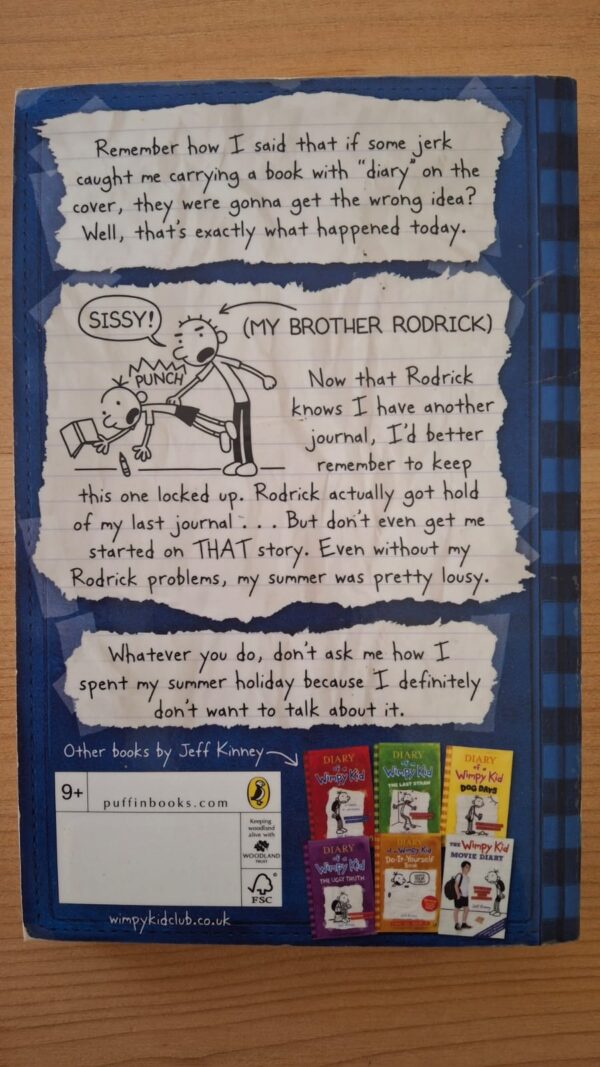 Remember how I said that if some jerk
caught me carrying a book with "diary" on the
cover, they were gonna get the wrong idea?
Well, that's exactly what happened today.
SISSY!
(MY BROTHER RODRICK)
PUNCH
Now that Rodrick
knows I have another
journal, I'd better
remember to keep
this one locked up. Rodrick actually got hold
of my last journal . . . But don't even get me
started on THAT story. Even without my
Rodrick problems, my summer was pretty lousy.
Whatever you do, don't ask me how I
spent my summer holiday because I definitely
don't want to talk about it.
Other books by Jeff Kinney
9+
puffinbooks.com
Keeping
woodland
alive with
WOODLAND
TRUST
FSC
wimpykidclub.co.uk
DIARY
of a
Wimpy Kid
DIARY
of a
Wimpy Kid
THE LAST STRAW
DIARY
of a
Wimpy Kid
DOG DAYS
DIARY
of a
Wimpy Kid
THE UGLY TRUTH
DIARY
of a Wimpy Kid
Do-It-Yourself
Book
THE Wimpy Kid
MOVIE DIARY